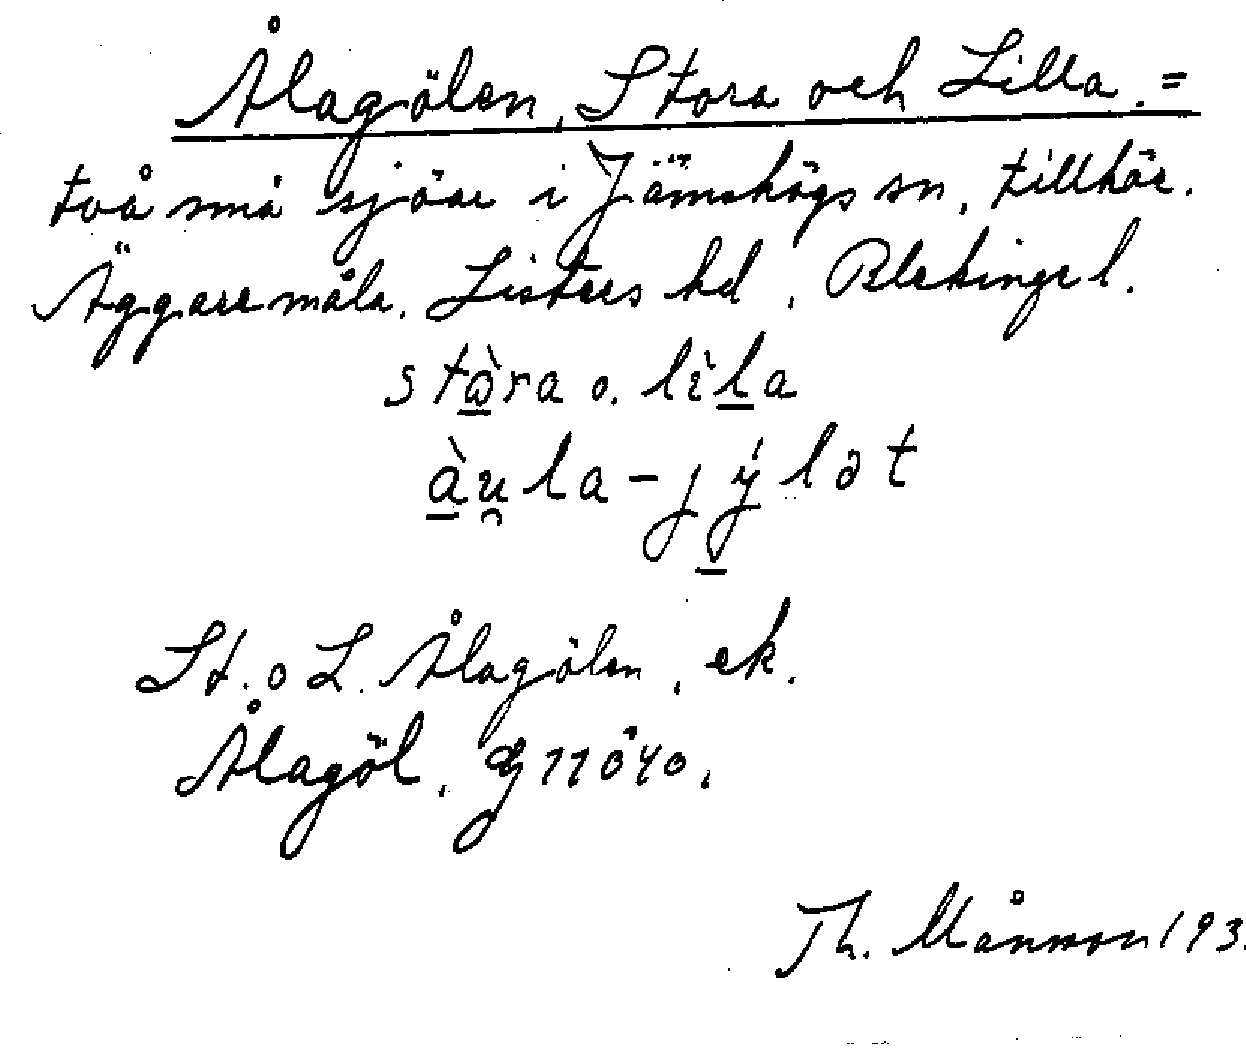 Ålagölen, Stora och Lilla. =
två små sjöar i Jämshögs sn, tillhör.
Äggaremåla. Listers hd, Blekinge l.
stɷ̀ra o. lìla
àu̯la-jýlət
St. o L. Ålagölen, ek.
Ålagöl, G 11040.
Th. Månsson 193